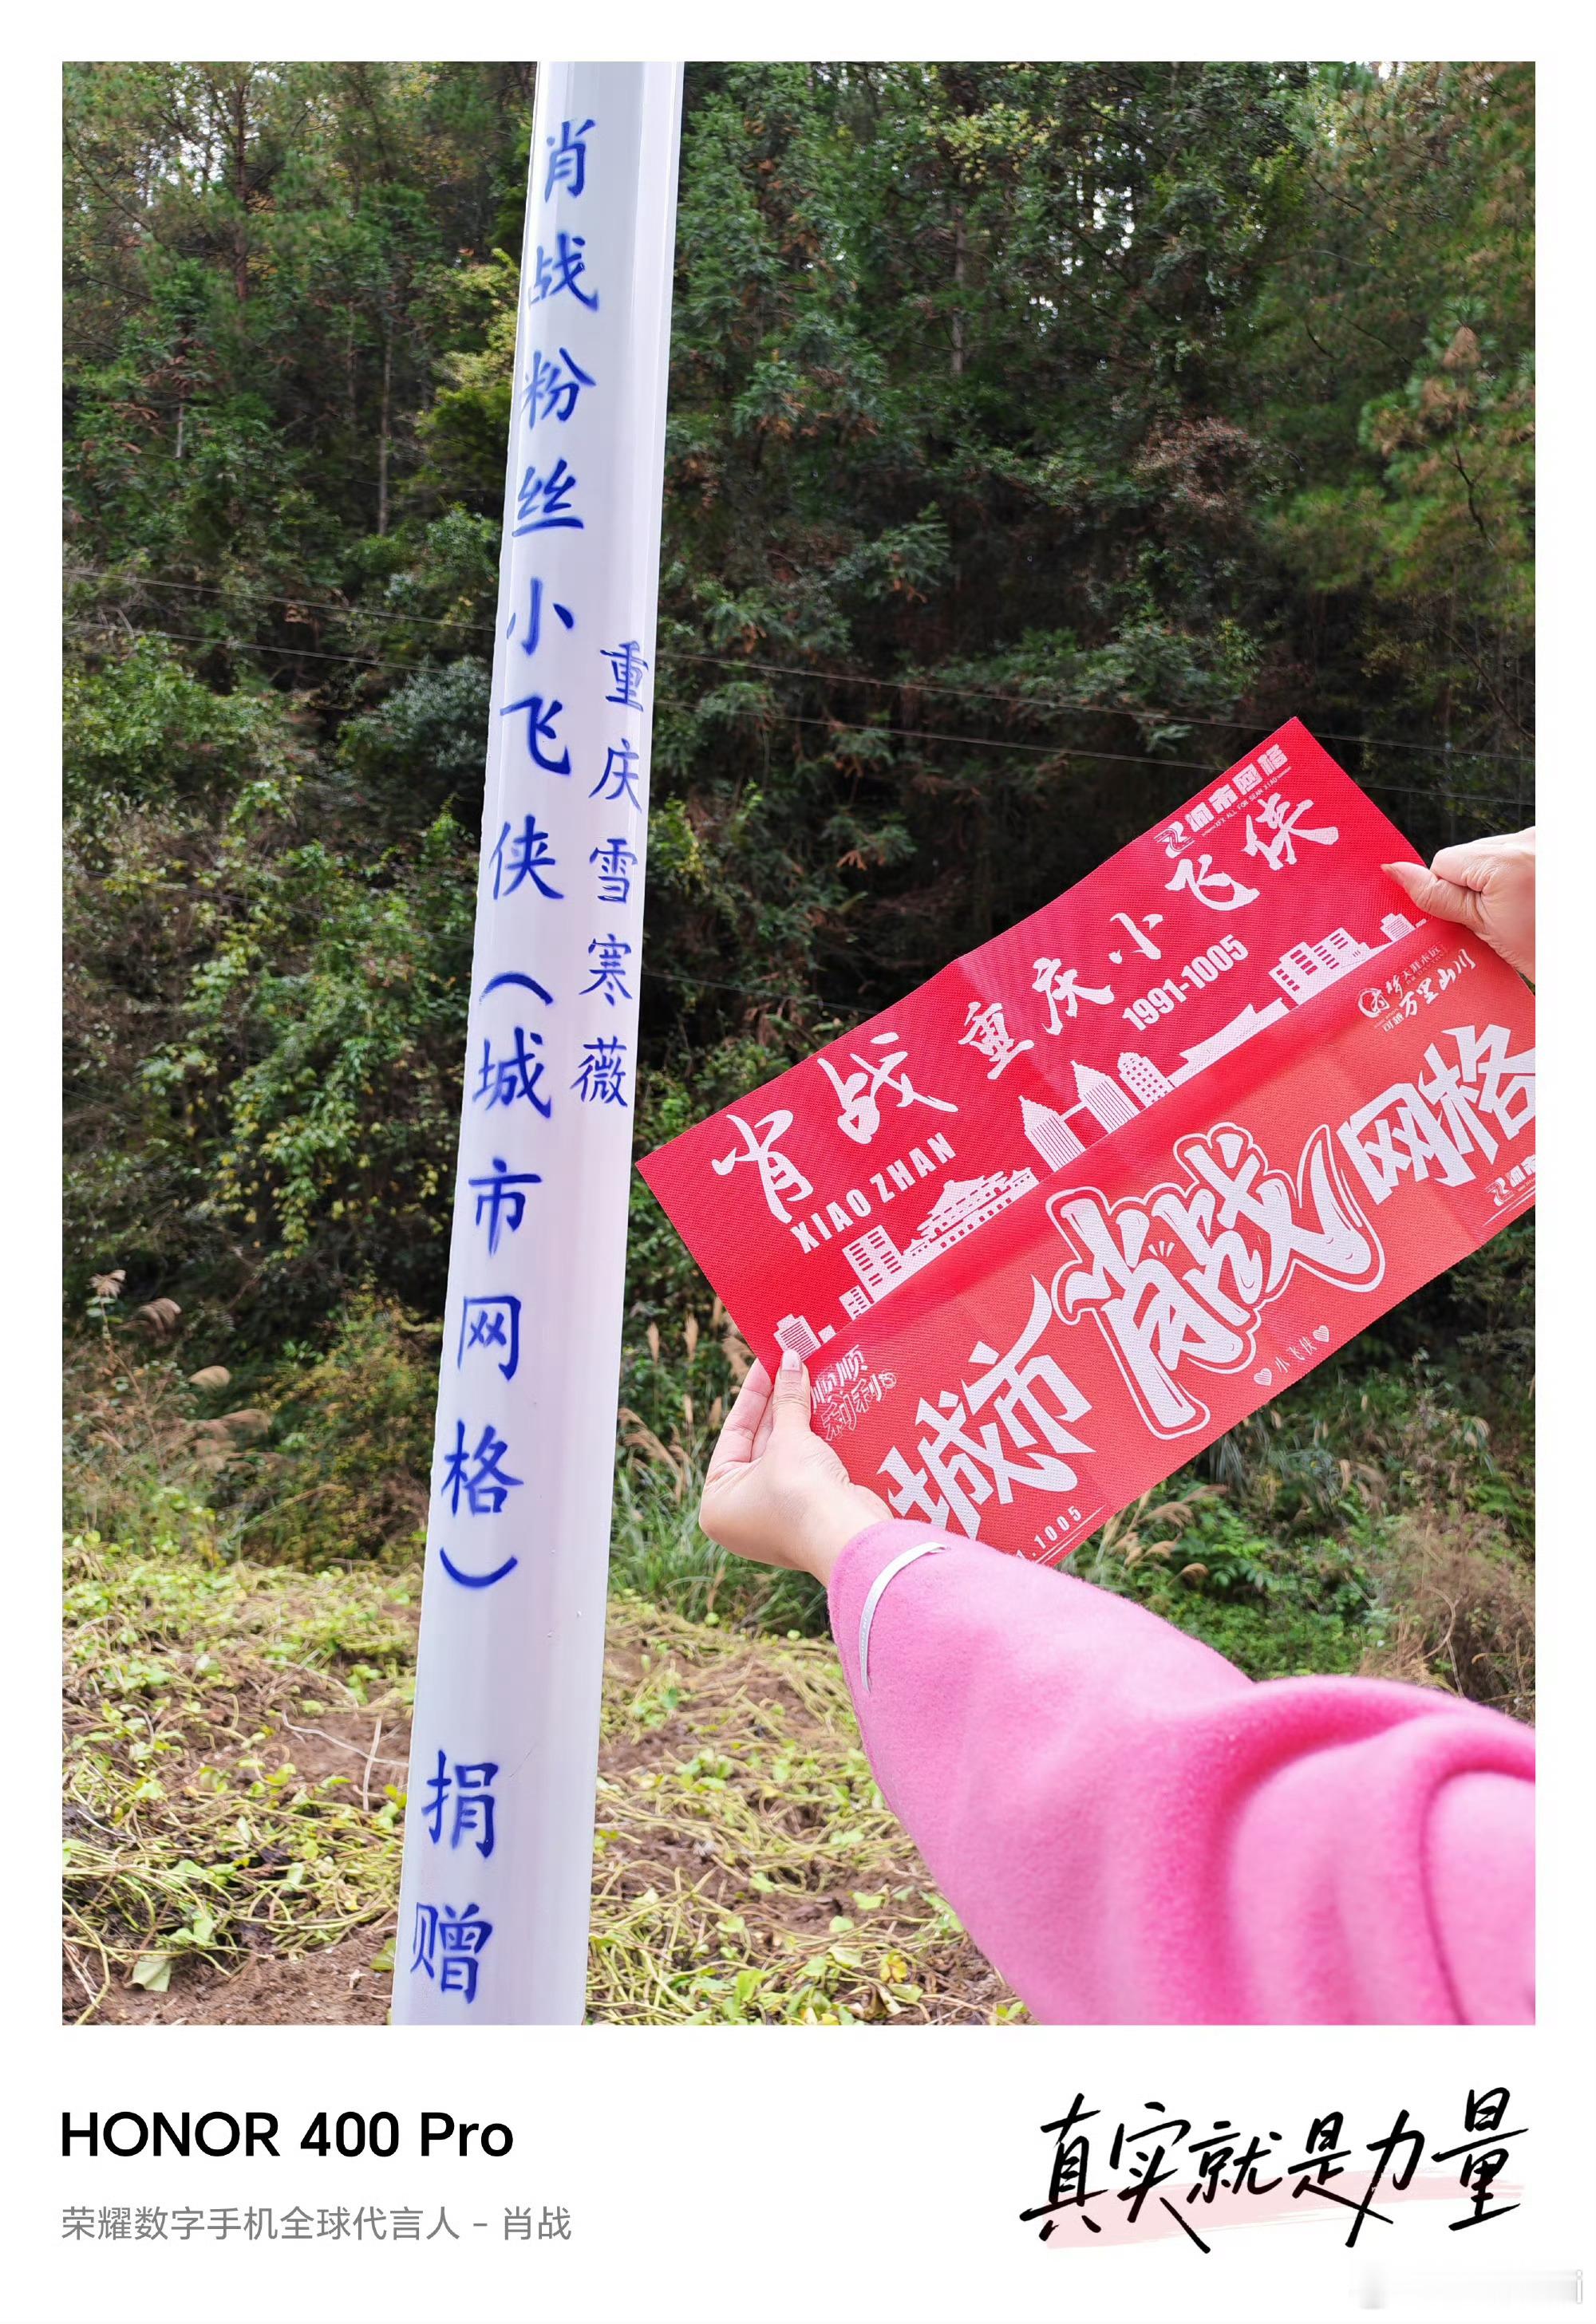 肖战粉丝小飞侠（城市网格） 捐赠
重庆雪寒薇
城市网格
肖战 重庆小飞侠
XIAO ZHAN
1991-1005
万里山川
顺顺利利
城市肖战网格
小飞侠
1005
HONOR 400 Pro
荣耀数字手机全球代言人 - 肖战
真实就是力量